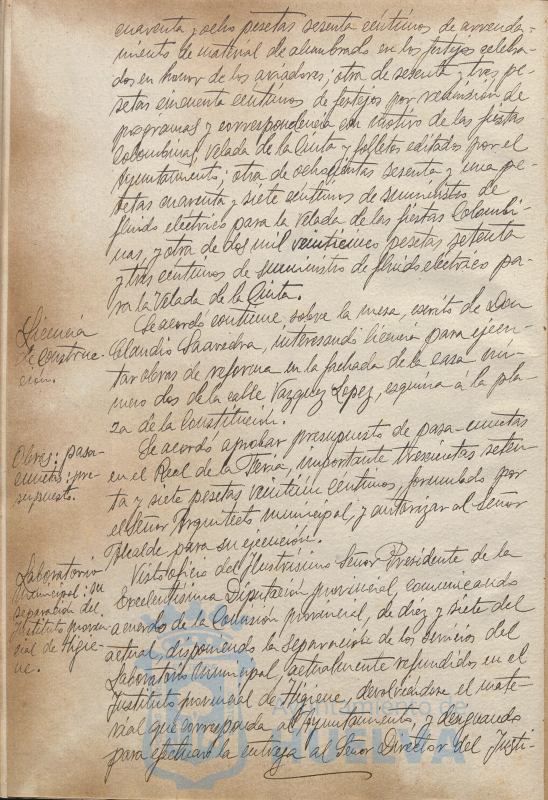 cuarenta y ocho pesetas sesenta céntimos de arrenda-
miento de material de alumbrado en los festejos celebra-
dos en honor de los aviadores; otra de sesenta y tres pe-
setas cincuenta céntimos de festejos por remisión de
programas y correspondencia con motivo de las fiestas
Colombinas, Velada de la Cinta y folletos editados por el
Ayuntamiento; otra de ochocientas sesenta y una pe-
setas cuarenta y siete céntimos de suministro de
fluido eléctrico para la Velada de las fiestas Colombi-
nas, y otra de dos mil veinticinco pesetas setenta
y tres céntimos de suministro de fluido eléctrico pa-
ra la Velada de la Cinta.
Licencia
de construc-
ción.
Se acordó continúe sobre la mesa, escrito de Don
Claudio Saavedra, interesando licencia para ejecu-
tar obras de reforma en la fachada de la casa nú-
mero dos de la calle Vazquez Lopez, esquina a la pla-
za de la Constitución.
Obras: pasa-
cunetas: pre-
supuesto.
Se acordó aprobar presupuesto de pasa-cunetas
en el Real de la Feria, importante trescientas seten-
ta y siete pesetas veintiun céntimos, formulado por
el Señor Arquitecto municipal, y autorizar al Señor
Alcalde para su ejecución.
Laboratorio
municipal: su
separación del
Instituto provin-
cial de Higie-
ne.
Visto oficio del Ilustrísimo Señor Presidente de la
Excelentísima Diputación provincial, comunicando
acuerdo de la Comisión provincial, de diez y siete del
actual, disponiendo la separación de los servicios del
Laboratorio municipal, actualmente refundidos en el
Instituto provincial de Higiene, devolviéndose el mate-
rial que corresponda al Ayuntamiento, y designando
para efectuar la entrega al Señor Director del Insti-
Ayuntamiento de
HUELVA